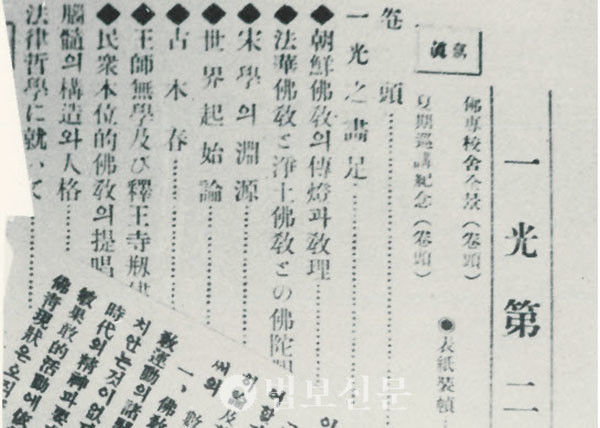 一光第二
●表紙裝幀
寫眞
佛專校舍全景（卷頭）
夏期巡講紀念（卷頭）
卷頭
一光之畵足
◆朝鮮佛敎의傳燈과敎理
◆法華佛敎と淨土佛敎との佛陀
◆宋學의淵源
◆世界起始論
◆古木春
◆王師無學及び釋王寺
◆民衆本位的佛敎의提唱
腦髓의構造와人格
法律哲學に就いて
敎運動의諸
一、佛敎
치안는것이업
時代의精神과要
敎果敢的活動에
佛靑現狀은오직
법보신문